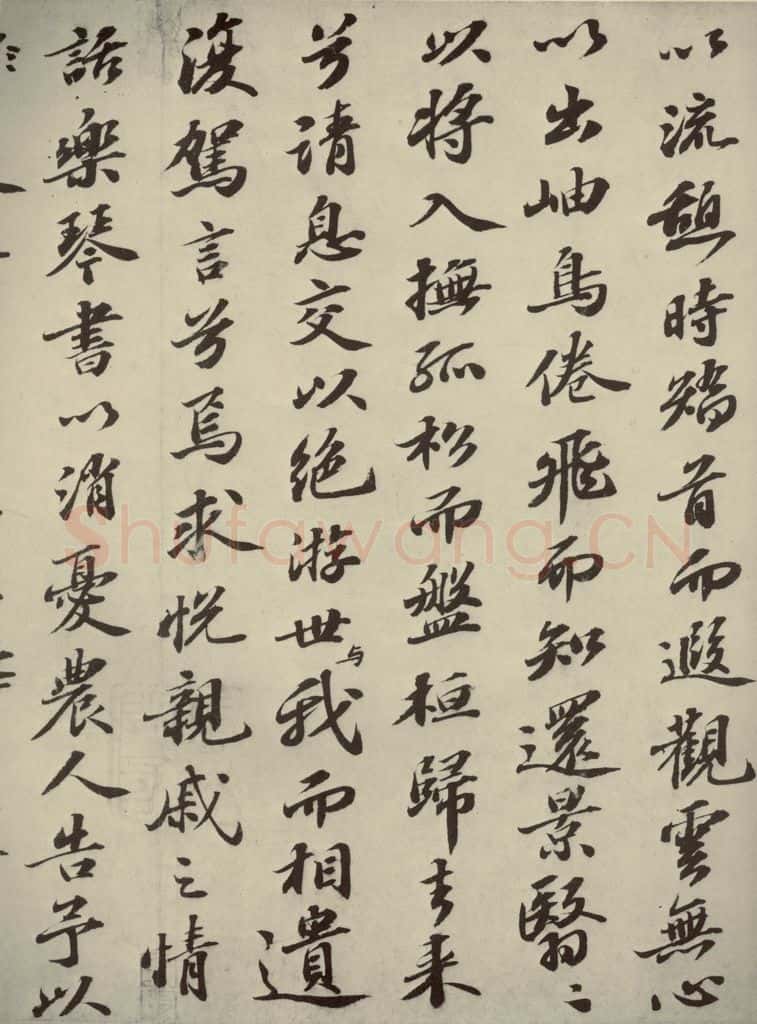 以流憩時矯首而遐觀雲無心
以出岫鳥倦飛而知還景翳〻
以將入撫孤松而盤桓歸去來
兮請息交以絕游世与我而相遺
復駕言兮焉求悅親戚之情
話樂琴書以消憂農人告予以
Shufawang.CN